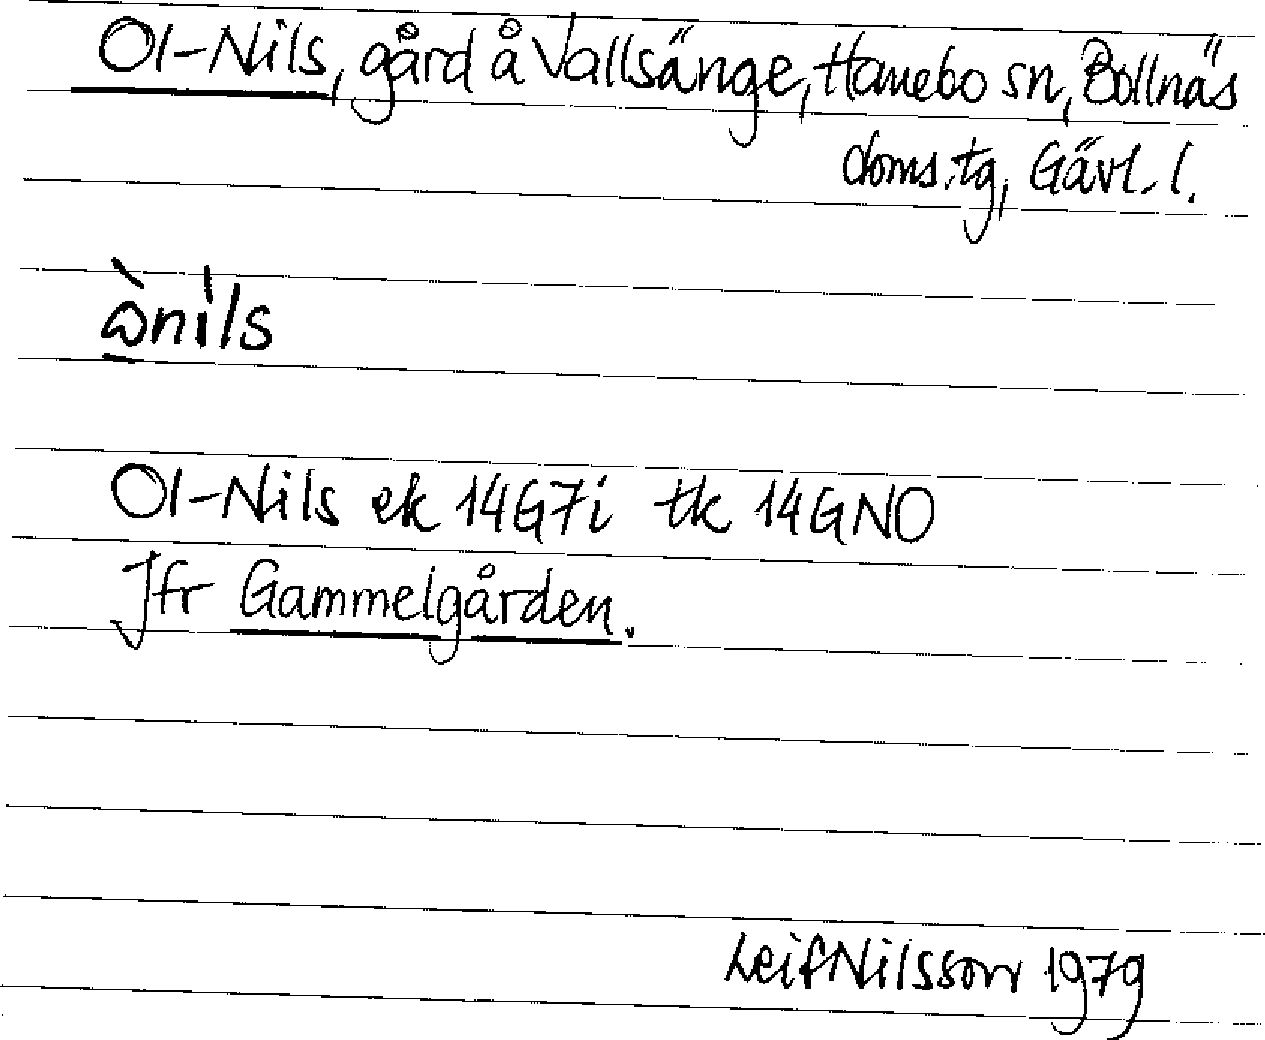 Ol-Nils, gård å Vallsänge, Hanebo sn, Bollnäs
doms.tg, Gävl. l.
Ol-Nils ek 14G7i tk 14GNO
Jfr Gammelgården.
Leif Nilsson 1979